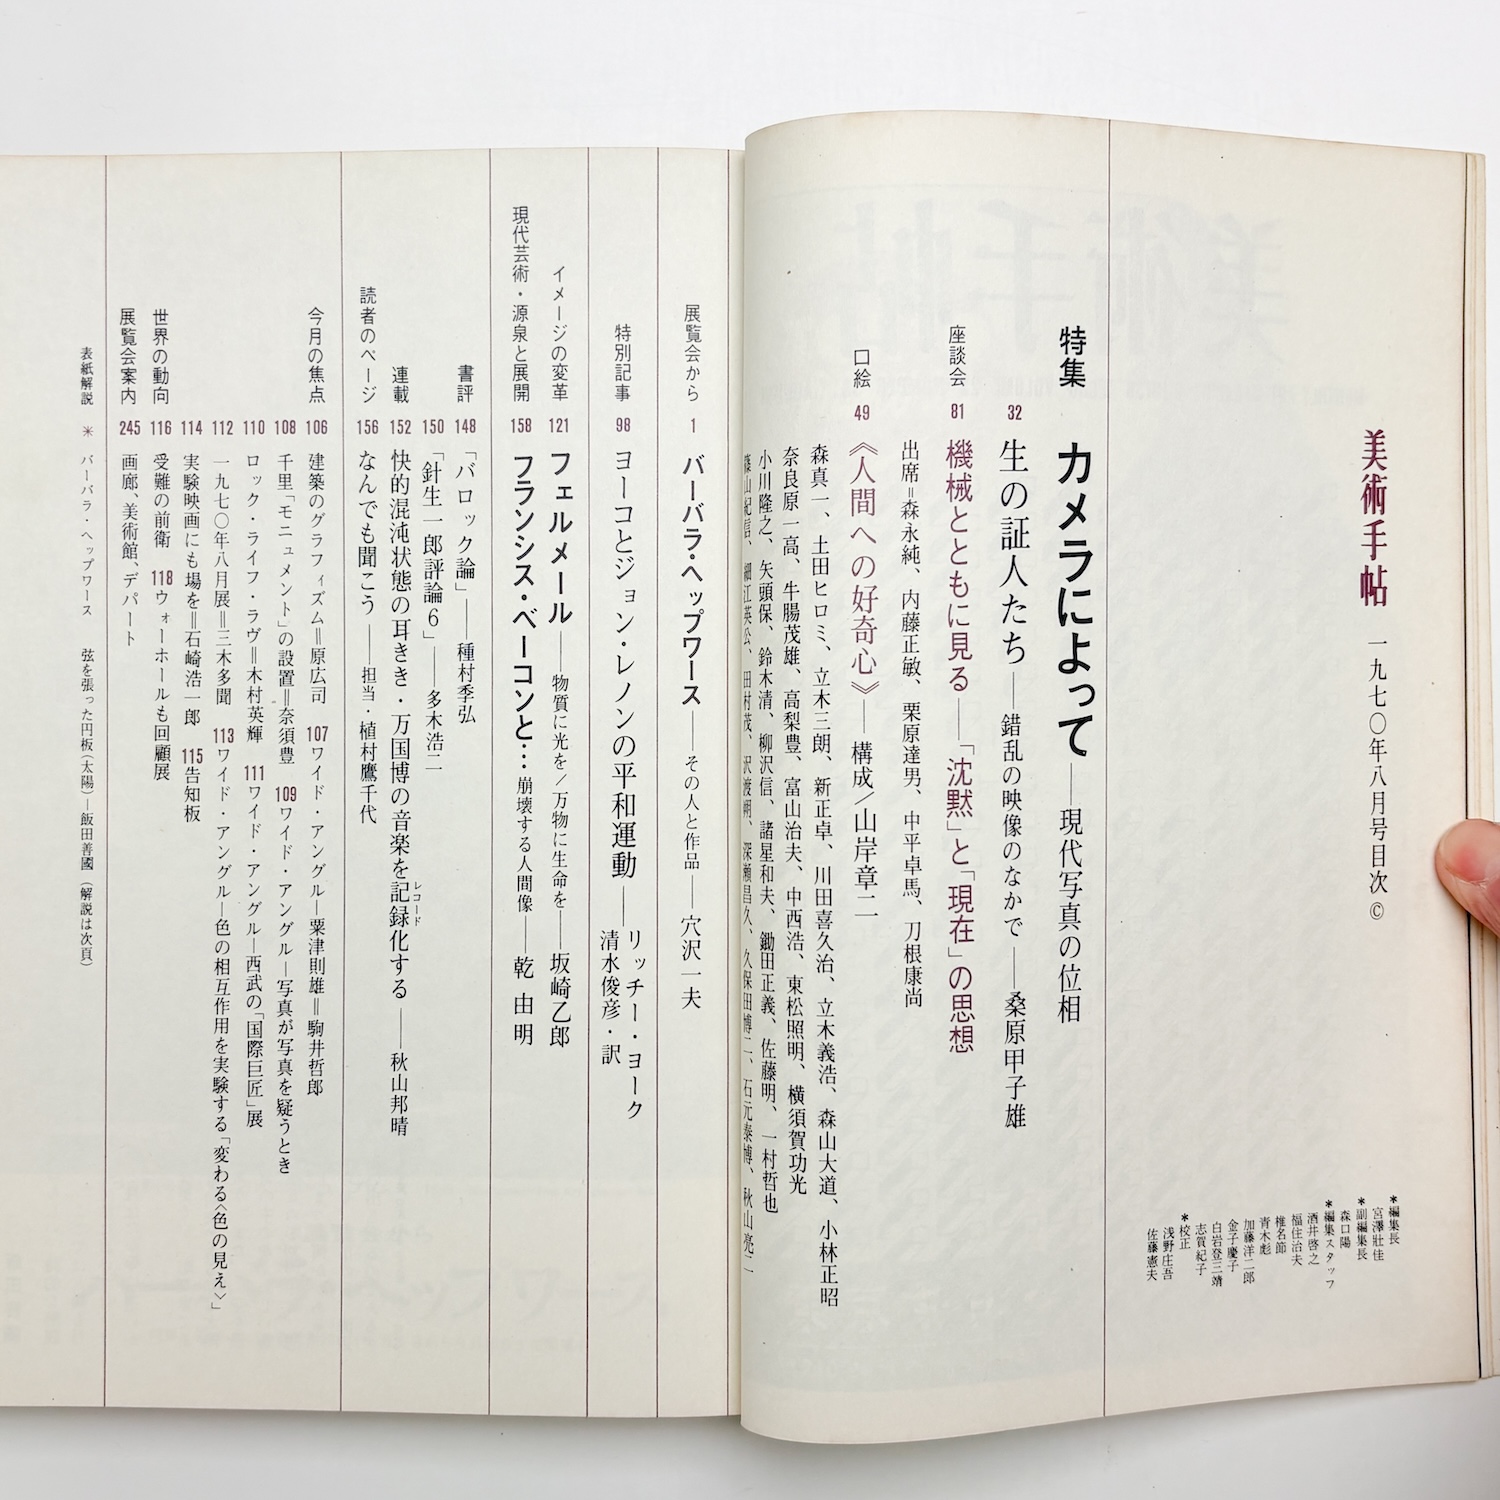 美術手帖 一九七〇年八月号目次 ©
*編集長
宮澤壯佳
*副編集長
森口陽
*編集スタッフ
酒井啓之
福住治夫
椎名節
青木彪
加藤洋二郎
金子慶子
白岩登三靖
志賀紀子
*校正
浅野庄吾
佐藤憲夫
特集 カメラによって——現代写真の位相
32 生の証人たち——錯乱の映像のなかで——桑原甲子雄
座談会 81 機械とともに見る——「沈黙」と「現在」の思想
出席=森永純、内藤正敏、栗原達男、中平卓馬、刀根康尚
口絵 49 《人間への好奇心》——構成／山岸章二
森真一、土田ヒロミ、立木三朗、新正卓、川田喜久治、立木義浩、森山大道、小林正昭
奈良原一高、牛腸茂雄、高梨豊、富山治夫、中西浩、東松照明、横須賀功光
小川隆之、矢頭保、鈴木清、柳沢信、諸星和夫、鋤田正義、佐藤明、一村哲也
篠山紀信、細江英公、田村茂、沢渡朔、深瀬昌久、久保田博二、石元泰博、秋山亮二
展覧会から 1 バーバラ・ヘップワース——その人と作品——穴沢一夫
特別記事 98 ヨーコとジョン・レノンの平和運動——リッチー・ヨーク
清水俊彦・訳
イメージの変革 121 フェルメール——物質に光を／万物に生命を——坂崎乙郎
現代芸術・源泉と展開 158 フランシス・ベーコンと…崩壊する人間像—乾由明
書評 148 「バロック論」——種村季弘
150 「針生一郎評論6」——多木浩二
連載 152 快的混沌状態の耳きき・万国博の音楽を記録化する——秋山邦晴
レコード
読者のページ 156 なんでも聞こう——担当・植村鷹千代
今月の焦点 106 建築のグラフィズム=原広司 107 ワイド・アングル—粟津則雄=駒井哲郎
108 千里「モニュメント」の設置=奈須豊 109 ワイド・アングル—写真が写真を疑うとき
110 ロック・ライフ・ラヴ=木村英輝 111 ワイド・アングル—西武の「国際巨匠」展
112 一九七〇年八月展=三木多聞 113 ワイド・アングル—色の相互作用を実験する「変わる〈色の見え〉」
114 実験映画にも場を=石崎浩一郎 115 告知板
世界の動向 116 受難の前衛 118 ウォーホールも回顧展
展覧会案内 245 画廊、美術館、デパート
表紙解説 * バーバラ・ヘップワース 弦を張った円板（太陽）—飯田善國（解説は次頁）